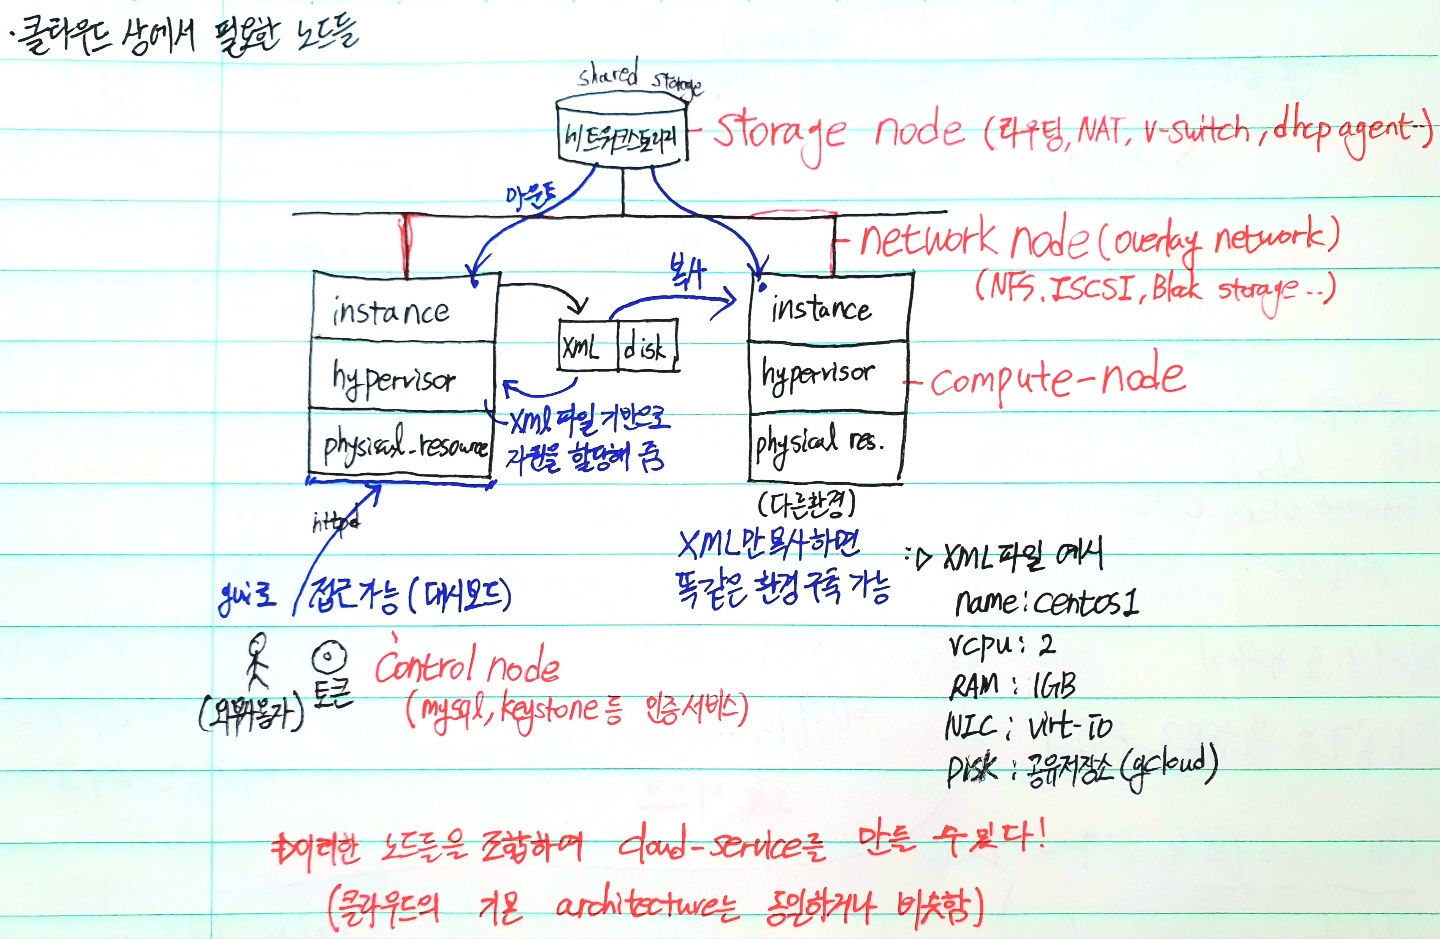 ·클라우드 상에서 필요한 노드들
shared storage
네트워크스토리지
storage node (라우팅, NAT, V-switch, dhcp agent..)
마운트
network node (overlay network)
(NFS. ISCSI, Block storage ..)
복사
instance
XML disk
instance
hypervisor
hypervisor
compute-node
xml파일 기반으로
자원을 할당해 줌
physical_resource
physical res.
(다른환경)
httpd
XML만 복사하면
똑같은 환경 구축 가능
gui로 접근가능 (대시보드)
:▷ XML파일 예시
name: centos1
vcpu: 2
RAM : 1GB
NIC : virt-io
DISK : 공유저장소 (gcloud)
(외부사용자)
토큰
Control node
(mysql, keystone 등 인증서비스)
⇒이러한 노드들을 조합하여 cloud-service를 만들 수 있다!
(클라우드의 기본 architecture는 동일하거나 비슷함)